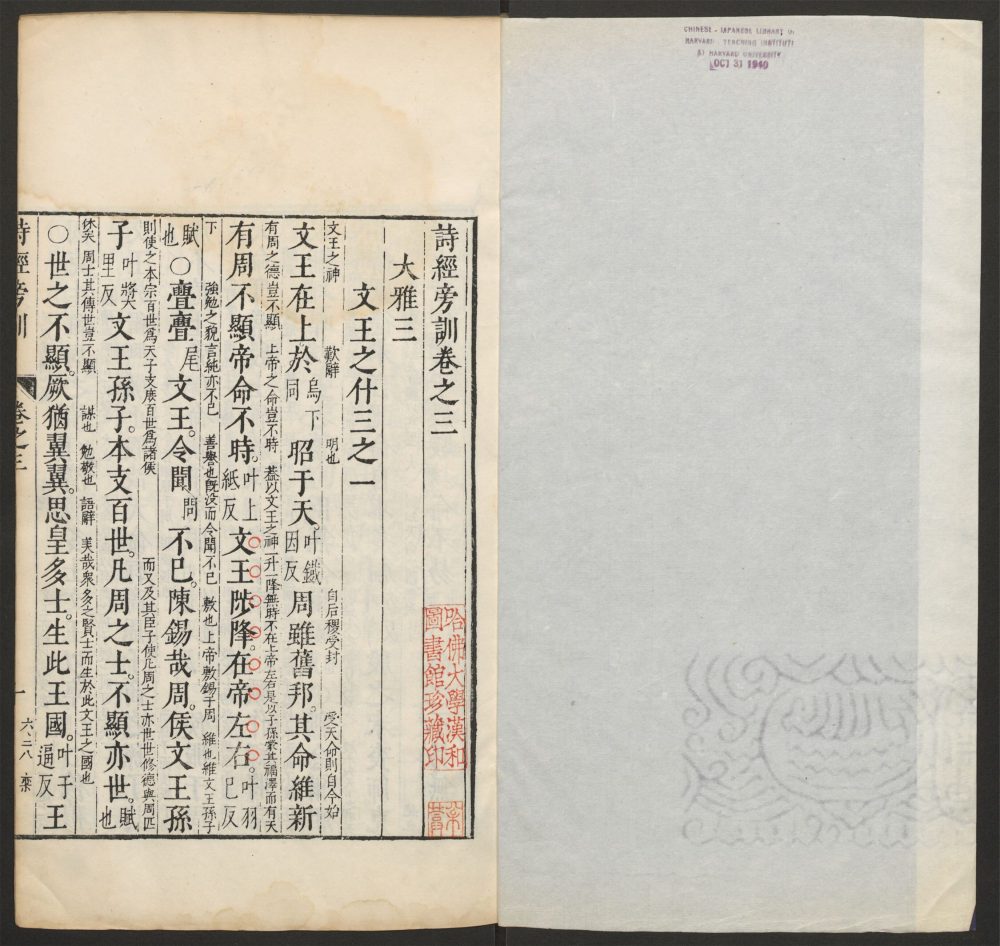 CHINESE - JAPANESE LIBRARY OF
HARVARD - YENCHING INSTITUTE
AT HARVARD UNIVERSITY
OCT 31 1940
詩經旁訓卷之三
大雅三
文王之什三之一
文王之神 歎辭 明也 自后稷受封 受天命則自今始
文王在上於烏下同昭于天叶鐵因反周雖舊邦其命維新
有周之德豈不顯 上帝之命豈不時 葢以文王之神一升一降無時不在上帝左右是以子孫蒙其福澤而有天
有周不顯帝命不時叶上紙反文王陟降在帝左右叶羽已反
下 強勉之貌言純亦不已 善譽也旣没而令聞不已 敷也上帝敷錫于周 維也維文王孫子
賦也○亹亹尾文王令聞問不已陳錫哉周侯文王孫
則使之本宗百世爲天子支庶百世爲諸侯 而又及其臣子使凡周之士亦世世修德與周匹
子叶奬里反文王孫子本支百世凡周之士不顯亦世賦也
休矣 周士其傳世豈不顯 謀也 勉敬也 語辭 美哉衆多之賢士而生於此文王之國也
○世之不顯厥猶翼翼思皇多士生此王國叶于逼反王
詩經旁訓 卷之三 一 六、二八
哈佛大學漢和
圖書館珍藏印